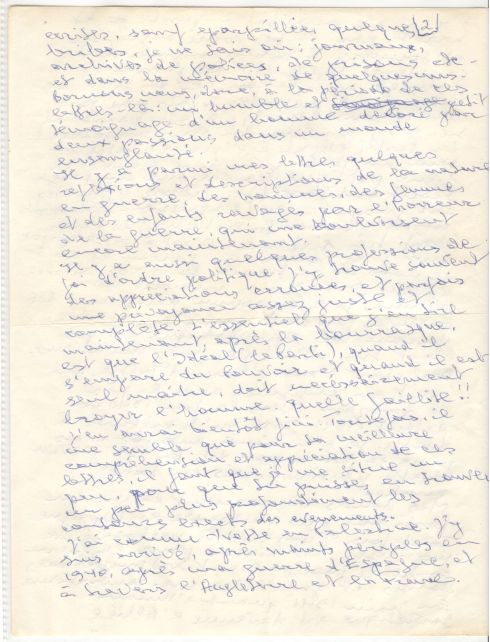 écrites, sont éparpillées, quelques [2]
bribes, je ne sais où : journaux,
archives de polices, de prisons etc -
et dans la mémoire de quelques-uns.
Bornons nous, donc, à la période de ces
lettres-là : un humble et petit
témoignage d'un homme dévoré par
deux passions dans un monde
ensanglanté.
Il y a parmi mes lettres quelques
réflexions et descriptions de la nature
en guerre, des hommes, des femmes
et des enfants ravagés par l'horreur
de la guerre, qui me bouleversent
encore maintenant.
Il y a aussi quelques professions de
foi d'ordre politique. J'y trouve souvent
des appréciations erronées, et parfois
une prévoyance assez juste et
complète. L'essentiel que j'en tire
maintenant, après la bourrasque,
est que l'Idéal (le Parti), quand il
s'empare du Pouvoir et quand il est
seul maître, doit nécessairement
broyer l'homme. Quelle faillite!!
J'en aurai bientôt fini. Toutefois, il
me semble que pour la meilleure
compréhension et appréciation de ces
lettres, il faut que je me situe un
peu, pour que tu puisses en trouver
un peu plus profondément les
contours exacts des événements.
J'ai connu Yvette en Palestine. J'y
suis arrivé, après maints périples en
1940, après une guerre d'Espagne, et
à travers l'Angleterre et la France.